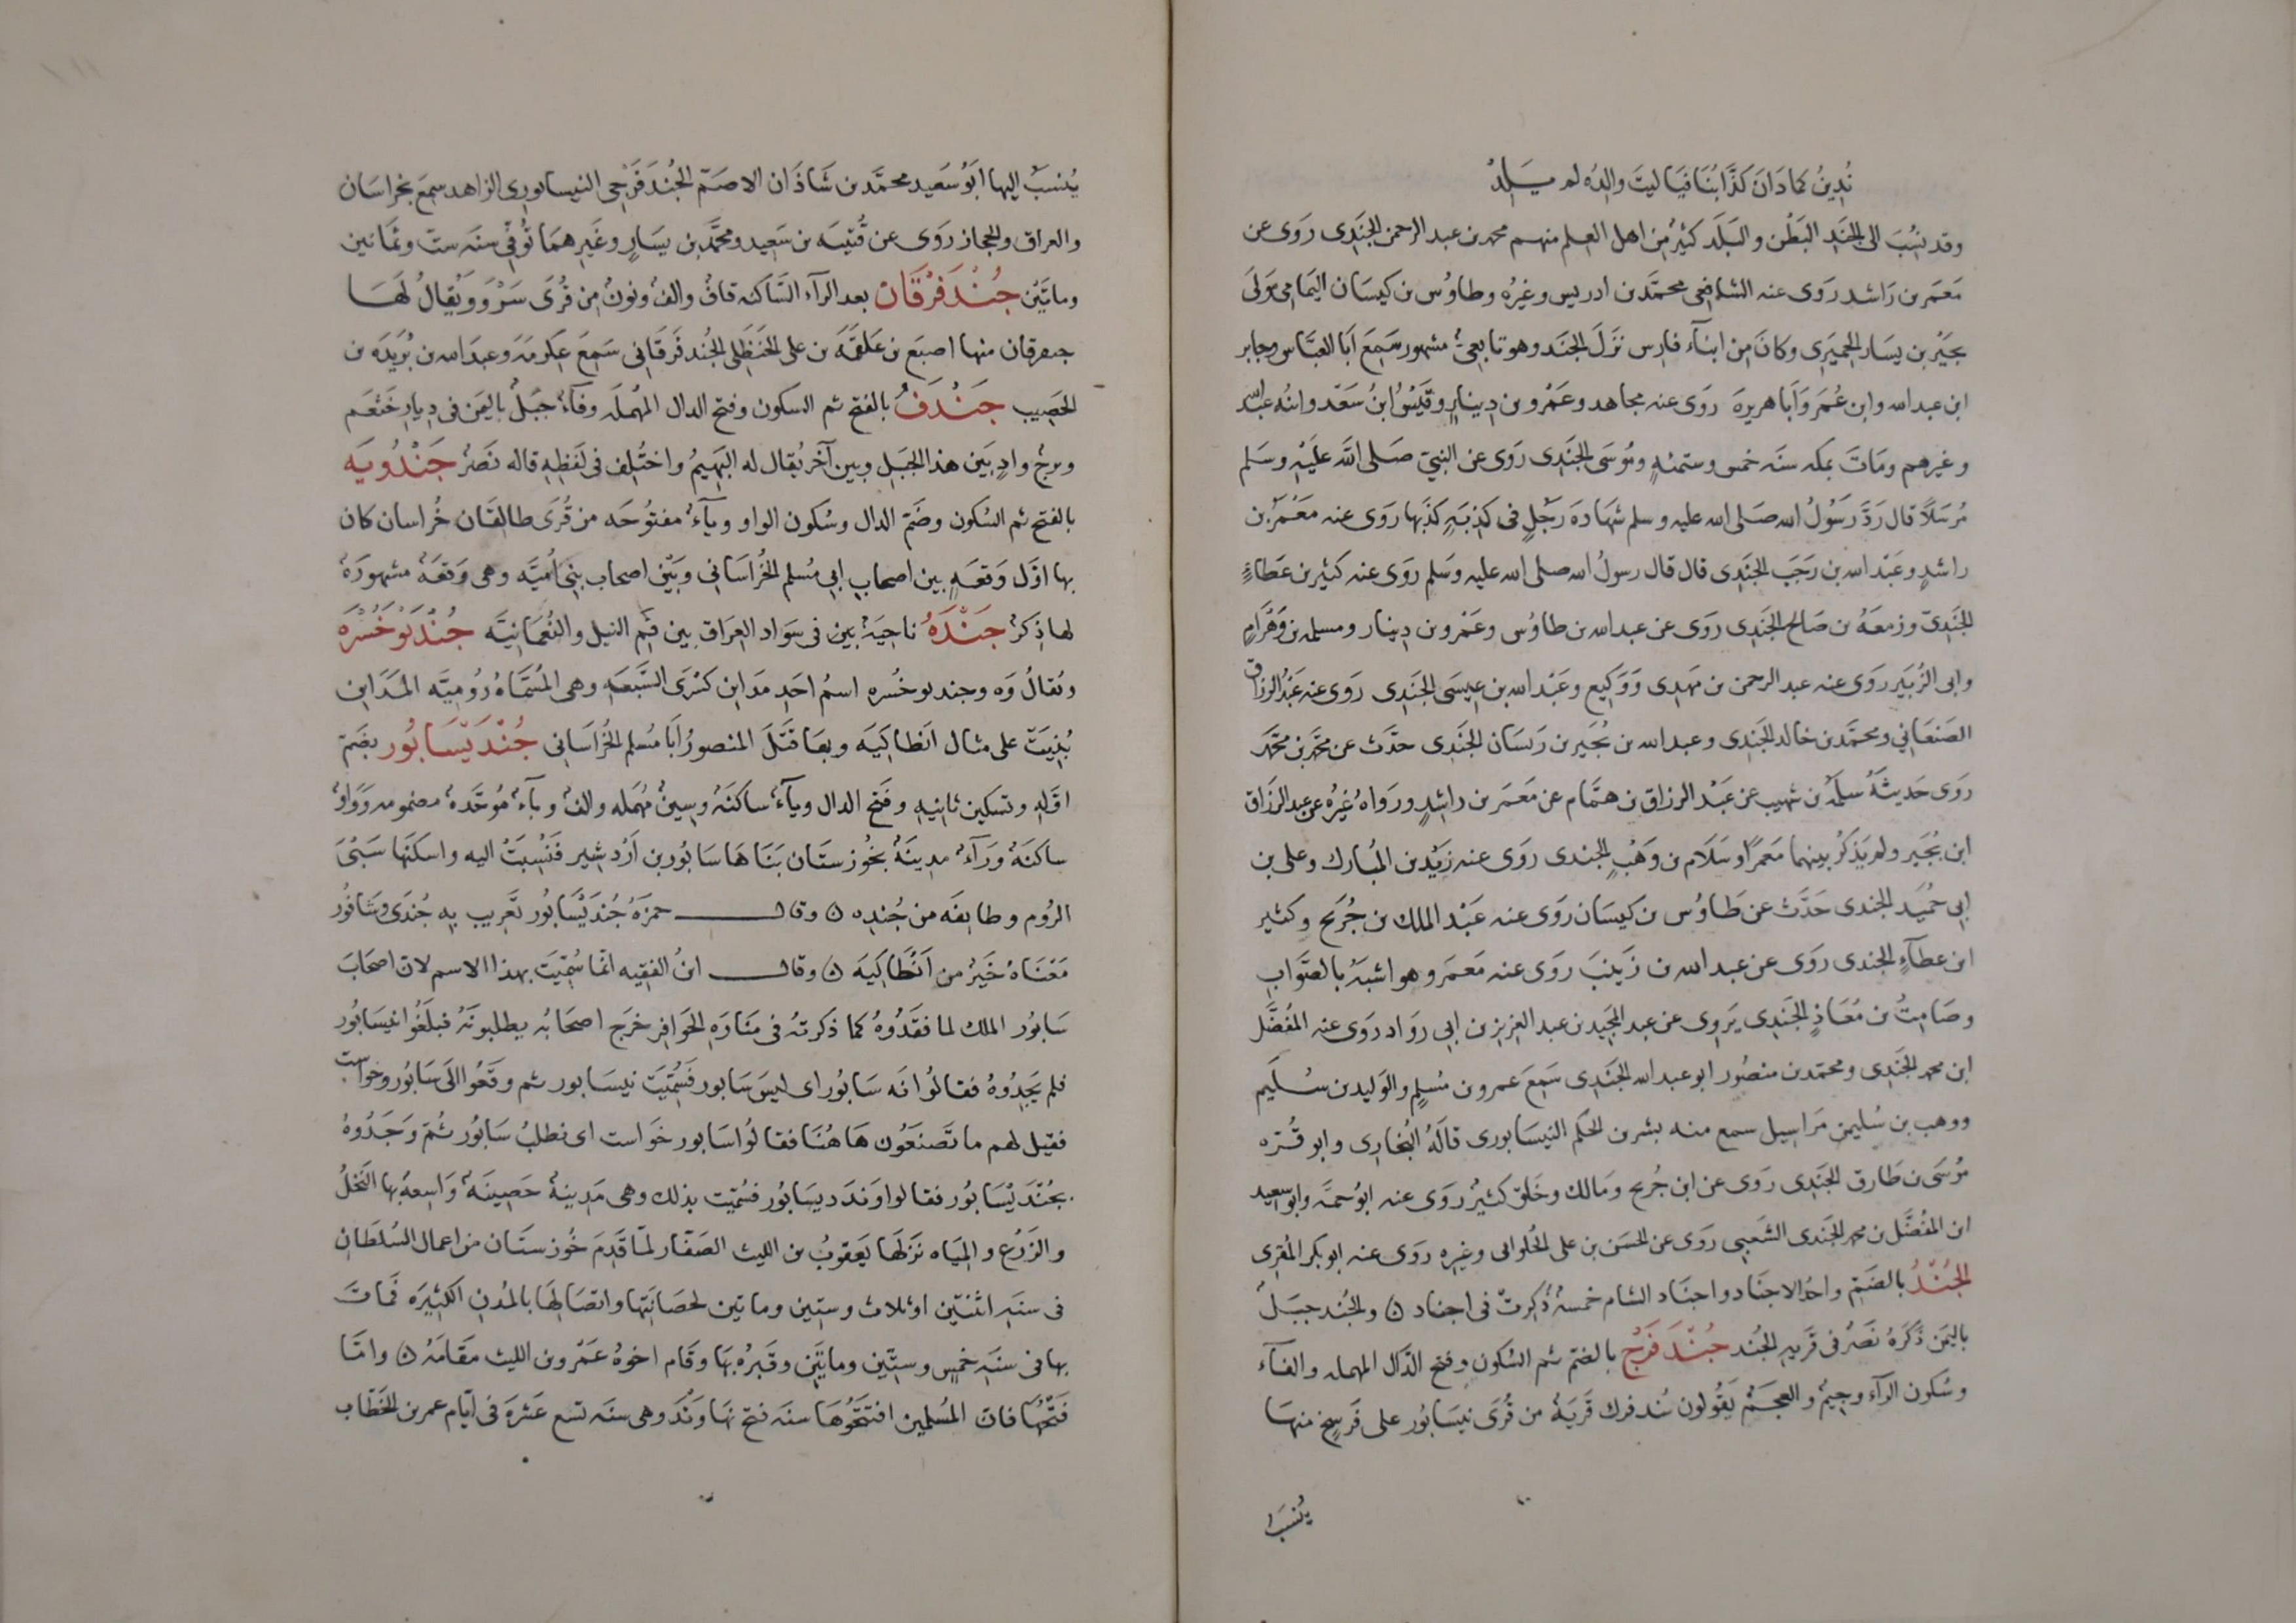 نُدِينُ كما دَانَ كَذَّابُنَا فيا ليتَ والِدُه لم يَلِدْ
وقد نُسِبَ الى الجَنَدِ البَطْن والبَلَد كثيرٌ مِن اهل العِلم منهم محمد بن عبد الرحمن الجَنَدِى رَوَى عن
مَعمَر بن رَاشد رَوَى عنه الشافعى محمَّد بن ادريس وغيرُه وطاوُس بن كيسَان اليَمامى مَولَى
بجَيْر بن يسَار الحِميَرِى وكانَ مِن ابنآء فارِس نَزَلَ الجَنَد وهو تابعىٌ مشهور سَمِعَ اَبا العبَّاس وجابر
ابن عبد الله وابن عُمَر وَاَبا هريرة رَوَى عنه مجاهد وعَمْرو بن دِينارٍ وقَيْسُ ابنُ سَعْد وابنُه عبد الله
وغيرهم ومَاتَ بمكه سَنَه خمس وستمئهٍ ومُوسَى الجَنَدِى رَوَى عن النبىّ صَلى الله عَلَيْه وسَلم
مُرسَلًا قال رَدَّ رَسُولُ الله صَلى الله عليه وسلم شهَادَة رَجُلٍ فى كَذِبَهٍ كَذَبَها رَوَى عنه مَعْمَرُ بن
راشدٍ وعَبْد الله بن رَجَبَ الجَنَدِى قال قال رسولُ الله صلى الله عليه وَسَلم رَوَى عنه كثير بن عَطاءٍ
الجَنَدِىّ وزمعَهُ بن صَالح الجَنَدِى رَوَى عن عبد الله بن طاوُس وعَمْرو بن دينار ومسلمه بن وَهْرَامٍ
وابى الزُبَير رَوَى عنه عبد الرحمن بن مَهدِى وَوَكِيع وعَبْد الله بن عِيسَى الجَنَدِى رَوَى عنه عَبْدُ الرزاق
الصَنعَانِي ومحمَّد بن خالد الجَنَدِى وعبد الله بن بُجَير بن رَيسَان الجَنَدِى حدَّث عن محمَّد بن محمَّد
رَوَى حَديثَهُ سلَمَةُ بن شبيب عن عَبْد الرزاق بن همَّام عن مَعمَر بن راشِدٍ ورَوَاه غيرُه عن عبد الرزاق
ابن بُجَير ولم يَذكُر بينهما مَعمَرًا وسَلَام بن وَهْبٍ الجندى رَوَى عنه زَيْد بن المُبارك وعلى بن
ابى حُمَيد الجندى حَدَّث عن طَاوُس بن كيسَان رَوَى عنه عَبْد الملك بن جُرَيج وكثير
ابن عطآءٍ الجندى رَوَى عن عبد الله بن زَينَبَ رَوَى عنه مَعمَر وهو اشبهُ بالصَّوَابِ
وصَامِتُ بن مُعَاذٍ الجَنَدِى يَروِى عن عبد المجيد بن عبد العزيز بن ابى رَواد رَوَى عنه المُفضَّل
ابن محمد الجَنَدِى ومحمّد بن منصُور ابو عبد الله الجَنَدِى سَمِعَ عمرو بن مُسلِمٍ والوَليد بن سُلَيم
ووهب بن سُليمن مَراسِيل سمع منه بشر بن الحَكم النيسَابورى قالَهُ البُخارِى وابو قُرّه
مُوسَى بن طَارق الجَنَدِى رَوَى عن ابن جُريح ومَالك وخَلقٍ كثيرٍ رَوَى عنه ابو حمه وابو سعيد
ابن المُفضَّل بن محمد الجَنَدِى الشَعبِى رَوَى عن الحَسَن بن على الحُلوانى وغيره رَوَى عنه ابو بكر المُقرِى
الجُنْدُ بالضَمّ واحدُ الاجنَاد واجنَاد الشام خمسةٌ ذُكِرتْ فى اجناد ۞ والجُند جبَلٌ
باليَمَن ذَكَرَهُ نَصْرٌ فى قَريه الجُند جُنْدَفَرْج بالضمّ ثم السُكون وفتح الدَّال المهمله والفآء
وسُكون الرآء وجِيمٌ والعجَمُ يقُولون بُندفرك قَريَةٌ من قُرَى نيسَابُور على فَرسخٍ منهَا
يُنسَبُ
يُنسَبُ اليها اَبُو سَعيد محمَّد بن شَاذَان الاصَمّ الجُندَفَرْجى النيسابورِى الزاهد سمعَ بخراسَان
والعراق والحجاز رَوَى عن قُتيبَه بن سَعِيد ومحمَّد بن يسَارٍ وغَيرهمَا تُوُفّي سَنه ستّ وثمَانين
وماتَيْن جُنْدَفَرْقَان بعد الرآء السَّاكنه قافٌ والفٌ ونونٌ من قُرَى مَرْوَ ويُقالُ لهَا
جفرقان منها اصبَع بن عَلقَمَه بن على الحَنظَلِى الجُندفَرقَانِى سَمِعَ عِكرمَهَ وعبدَ الله بن بُرَيدَه بن
الحصِيب جَنْدَفُ بالفتح ثم السكون وفتح الدال المُهملَه وفآءٌ جَبَلٌ باليَمن فى دِيارِ خَثعَم
وترج وادٍ بَين هذا الجَبَلِ وبين آخر يُقال له البَهِيمُ واختُلِف فى لَفظِهِ قاله نَصْرٌ جَنْدُويَه
بالفتح ثم السُكون وضَمّ الدال وسُكون الواو ويآءٌ مفتوُحَه من قُرَى طالقَان خُراسان كان
بها اوّل وَقعَهٍ بين اصحابِ ابى مُسلم الخُرَاسَانِى وبَيْن اصحاب بنى اُميَّه وهى وَقعَهٌ مشهورَةٌ
لها ذِكرٌ جَنْدَهُ ناحيَهٌ بين فى سَواد العِرَاق بين فَم النيل والنُعْمَانِيَّه جُنْدَبوخُسْرَه
ويُقالُ وَه وجندبوخُسره اسمُ احَد مدَاين كِسْرَى السَّبعَه وهى المُسَمَّاةُ رُومِيَّه المدَاين
بُنِيَتْ على مثال انطاكيَه وبها قَتَلَ المنصورُ اَبَا مُسلم الخُرَاسَانى جُنْدَيْسَابُور بضَمّ
اوّلِهِ وتسكين ثانِيهِ وفَتح الدال ويآءٌ ساكنَهٌ وسِينٌ مُهمَله والفٌ وبآءٌ مُوَحَّدهٌ مضمومه ووَاوٌ
ساكنَهٌ ورَآءٌ مدينَهٌ بخُوزستَان بَنَاهَا سَابُور بن اَرْدشير فَنُسِبَتْ اليه واسكَنَها سَبْىَ
الرُوم وطايفَه من جُندِه ۞ وقال حمزَهُ جُندَيْسَابُور تَعريب بِه جُندَى وشَافُور
مَعْنَاه خَيْرٌ من اَنْطَاكيَه ۞ وقال ابنُ الفقيه انمَا سُمّيَت بهذا الاسم لان اصحَابَ
سَابُور الملك لما فقَدُوهُ كما ذكرتهُ فى مَنارَةِ الحَوَافِر خَرَج اصحَابُه يطلبونَهُ فبلَغُوا نيسَابُور
فلم يَجِدُوهُ فقالُوا نَه سَابُور اى ليسَ سَابور فَسُمّيَت نيسَابور ثم وقَعُوا الَى سَابُور وخواست
فقيل لهم ما تَصنَعُون هَاهُنَا فقالُوا سَابور خَواست اى نطلبُ سَابُور ثُمّ وَجَدُوهُ
بجُنْدَيْسَابُور فقالوا وَندَديسَابُور فسُمّيت بذلك وهى مَدِينَهٌ حَصِينَهٌ وَاسِعهٌ بها النَخلُ
والزَرْع والمِيَاه نزلهَا يَعقوبُ بن الليث الصَفَّار لمّا قَدِمَ خُوزستَان من اعمال السُلطَان
فى سنَهِ اثنتَين او ثلاث وستِين وماتين لحصَانَتِها واتصَالِهَا بالمُدن الكثِيرَه فمَاتَ
بها فى سنَهِ خمسٍ وستّين وماتَين وقَبرُه بها وقَام اخوهُ عَمْرو بن الليث مقَامَهُ ۞ وامّا
فَتْحُهَا فان المُسلمِين افتَتَحُوهَا سنَه فتح نهَاوَنْد وهى سنَه تسع عَشرَه فى ايّام عمر بن الخَطّاب